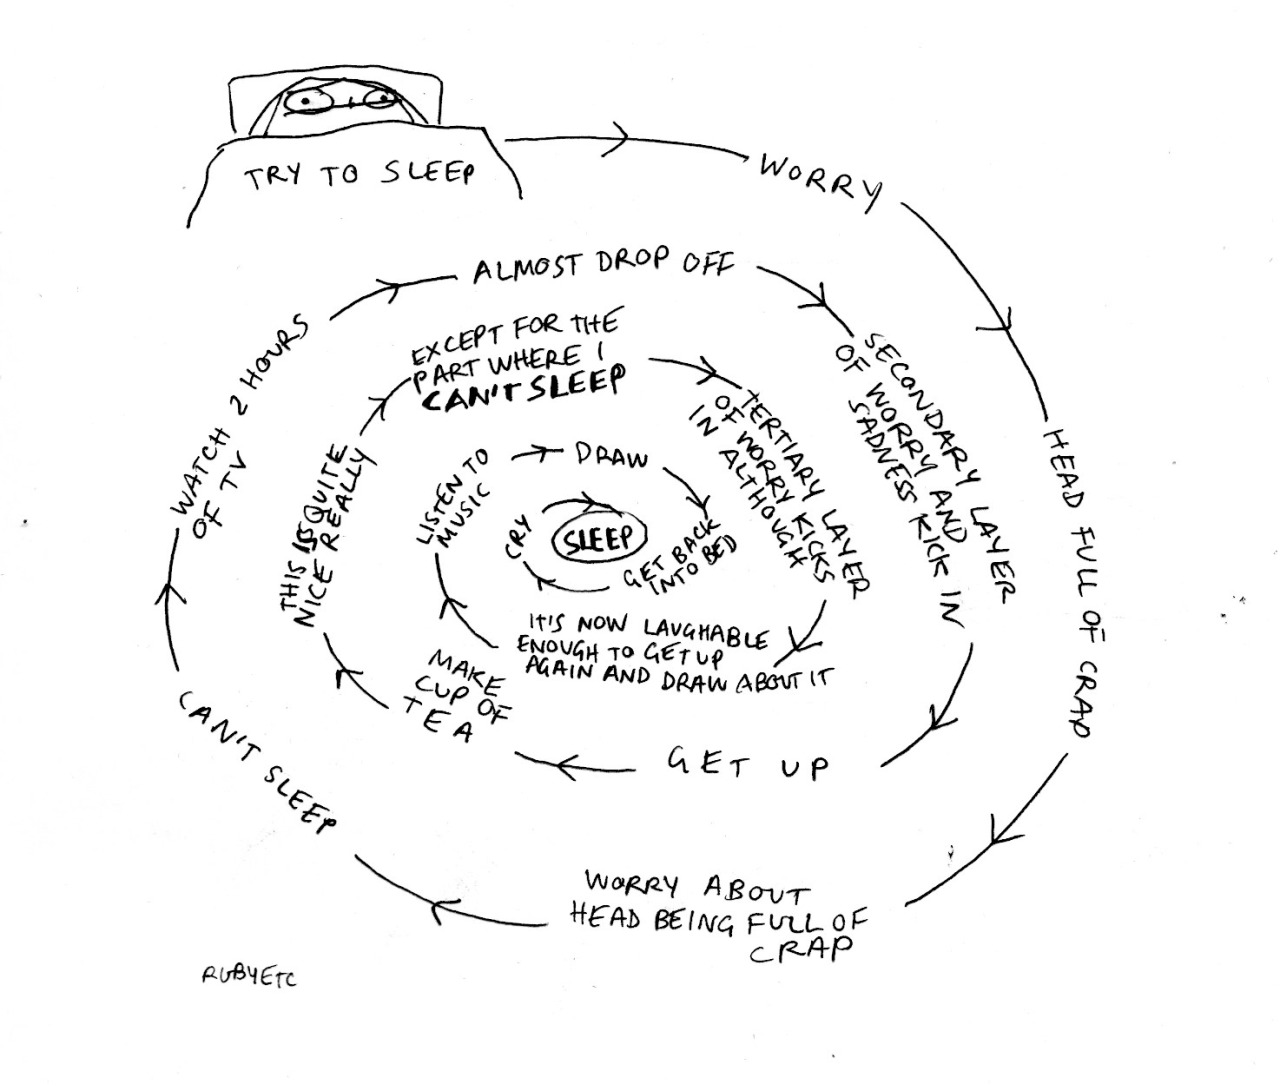 TRY TO SLEEP
WORRY
HEAD FULL OF CRAP
WORRY ABOUT
HEAD BEING FULL OF
CRAP
CAN'T SLEEP
WATCH 2 HOURS
OF TV
ALMOST DROP OFF
SECONDARY LAYER
OF WORRY AND
SADNESS KICK IN
GET UP
MAKE
CUP OF
TEA
THIS IS QUITE
NICE REALLY
EXCEPT FOR THE
PART WHERE I
CAN'T SLEEP
TERTIARY LAYER
OF WORRY KICKS
IN ALTHOUGH
IT'S NOW LAUGHABLE
ENOUGH TO GET UP
AGAIN AND DRAW ABOUT IT
LISTEN TO
MUSIC
DRAW
GET BACK
INTO BED
CRY
SLEEP
RUBYETC